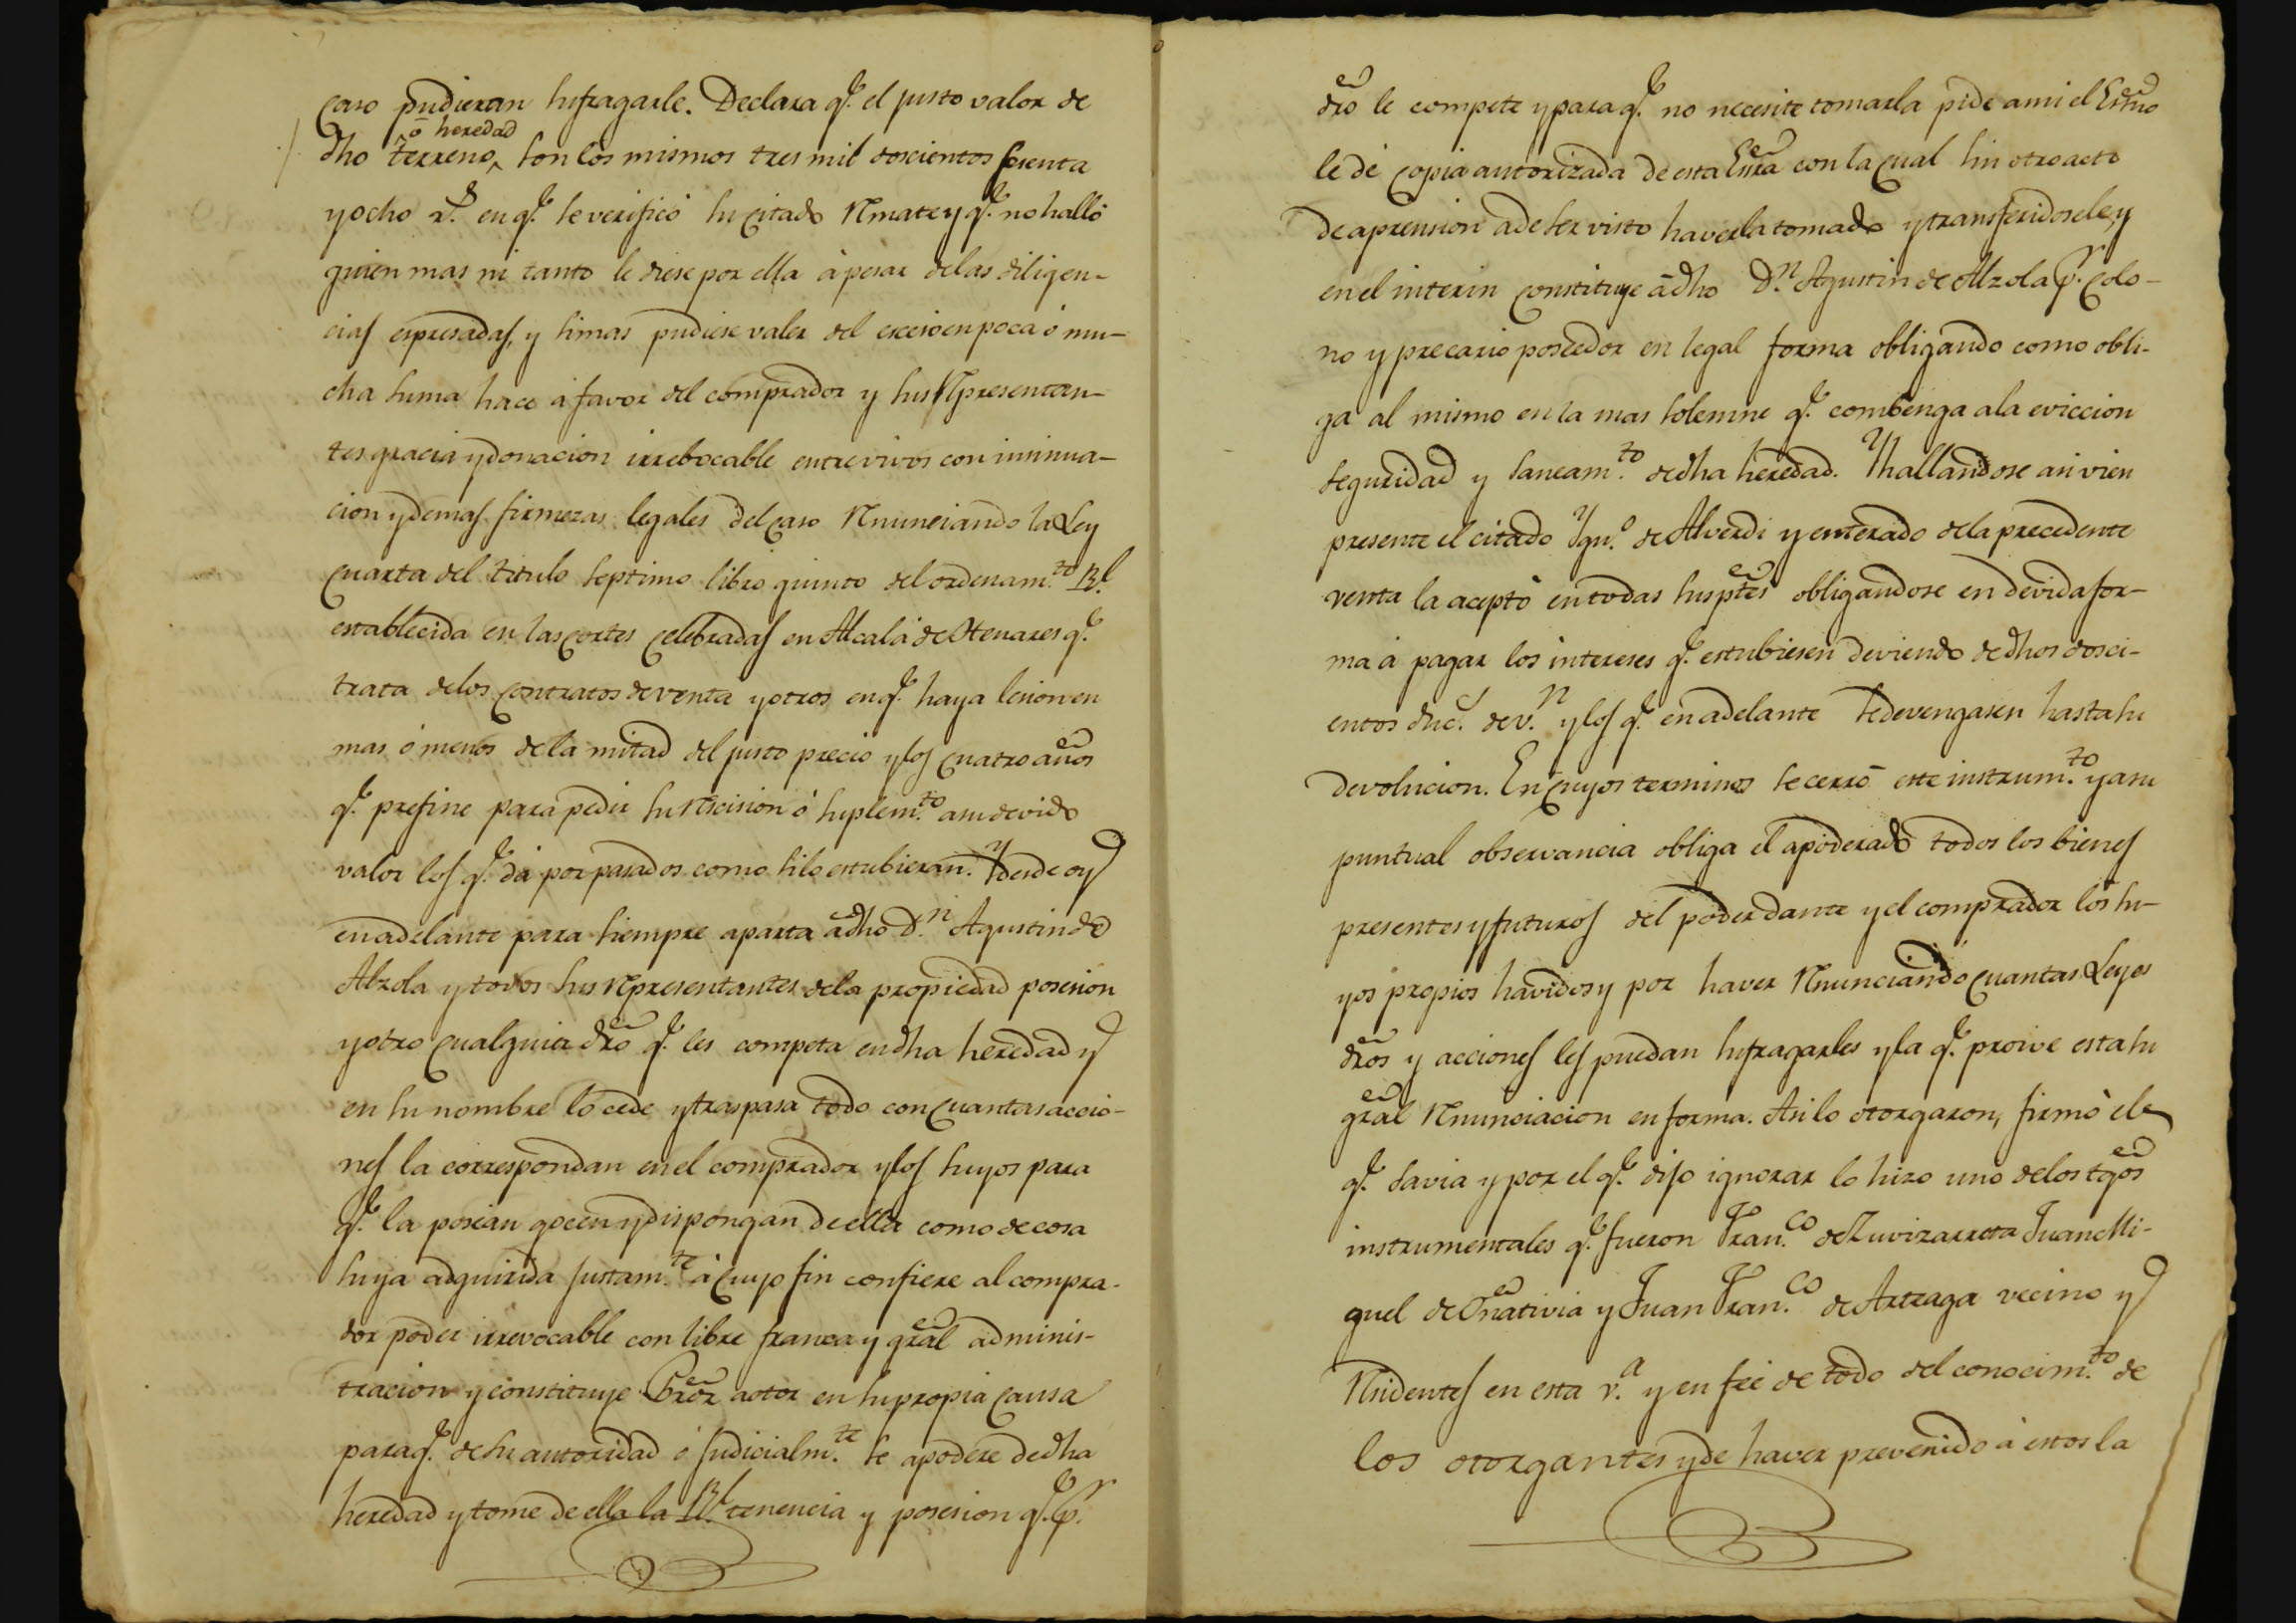 caso pudieran sufragarle. Declara q.e el justo valor de
ó heredad
dho terreno, son los mismos tres mil doscientos sesenta
y ocho r.s en q.e se verificó su citado Rmate y q.e no halló
quien mas ni tanto le diese por ella á pesar de las diligen-
cias espresadas, y si mas pudiese valer del exceso en poca ó mu-
cha suma hace á favor del comprador y sus Rpresentan-
tes gracia y donacion irrebocable entre vivos con insinua-
cion y demas firmezas legales del caso Rnunciando la Ley
cuarta del titulo septimo libro quinto del ordenam.to Rl.
establecida en las cortes celebradas en Alcalá de Henares q.e
trata de los contratos de venta y otros en q.e haya lesion en
mas ó menos de la mitad del justo precio y los cuatro años
q.e prefine para pedir su Rscision ó suplem.to a su devido
valor los q.e dá por pasados como si lo estubieran. Y desde oy
en adelante para siempre aparta á dho D.n Agustin de
Alzola y todos sus Rpresentantes de la propiedad posesion
y otro cualquier dro q.e les competa en dha heredad y
en su nombre lo cede y traspasa todo con cuantas accio-
nes la correspondan en el comprador y los suyos para
q.e la posean gocen y dispongan de ella como de cosa
suya adquirida justam.te á cuyo fin confiere al compra-
dor poder irrevocable con libre franca y gral adminis-
tracion y constituye Pror actor en su propia causa
para q.e de su autoridad ó judicialm.te se apodere de dha
heredad y tome de ella la Rl. tenencia y posesion q.e p.r
dro le compete y para q.e no necesite tomarla pide a mi el Essno
le dé copia autorizada de esta Essra con la cual sin otro acto
de aprension a de ser visto haverla tomado y transferidosele, y
en el interin constituye á dho D.n Agustin de Alzola p.r colo-
no y precario poseedor en legal forma obligando como obli-
ga al mismo en la mas solemne q.e combenga a la eviccion
seguridad y saneam.to de dha heredad. Y hallandose asi vien
presente el citado Ign.o de Alverdi y enterado de la precedente
venta la aceptó en todas sus ptes obligandose en devida for-
ma á pagar los intereses q.e estubiesen deviendo de dhos dosci-
entos duc.s de v.n y los q.e en adelante se devengasen hasta su
devolucion. En cuyos terminos se cerró este instrum.to y a su
puntual observancia obliga el apoderado todos los bienes
presentes y futuros del poderdante y el comprador los su-
yos propios havidos y por haver Rnunciando cuantas Leyes
dros y acciones les puedan sufragarles y la q.e proive esta su
gral Rnunciacion en forma. Asi lo otorgaron, firmó el
q.e savia y por el q.e dijo ignorar lo hizo uno de los tgos
instrumentales q.e fueron Fran.co de Zuvizarreta Juan Mi-
guel de Oñativia y Juan Fran.co de Arteaga vecino y
Rsidentes en esta v.a y en fee de todo del conocim.to de
los otorgantes y de haver prevenido á estos la